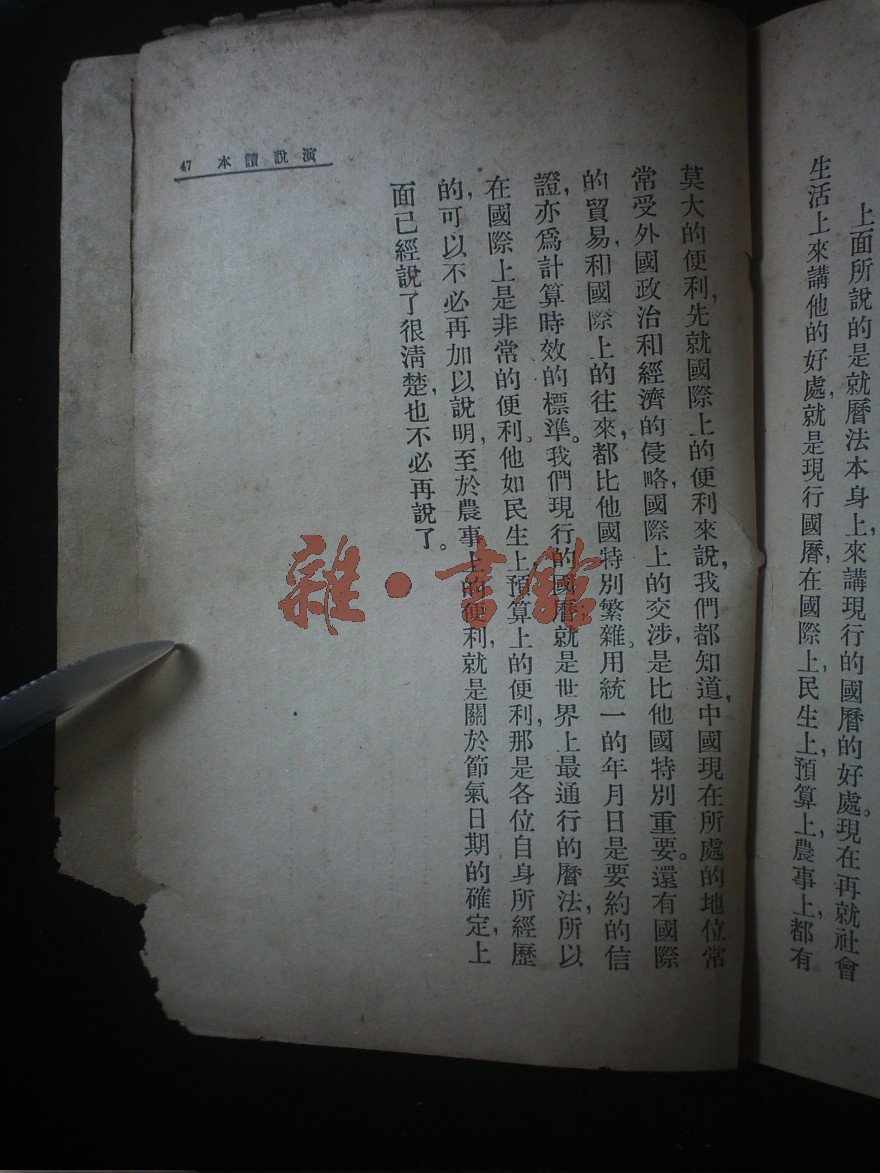 上面所說的是就曆法本身上來講現行的國曆的好處。現在再就社會
生活上來講他的好處,就是現行國曆,在國際上,民生上,預算上,農事上,都有
莫大的便利,先就國際上的便利來說,我們都知道,中國現在所處的地位常
常受外國政治和經濟的侵略,國際上的交涉,是比他國特別重要。還有國際
的貿易,和國際上的往來,都比他國特別繁雜。用統一的年月日是要約的信
證,亦爲計算時效的標準。我們現行的國曆,就是世界上最通行的曆法,所以
在國際上是非常的便利。他如民生上預算上的便利,那是各位自身所經歷
的,可以不必再加以說明,至於農事上的便利,就是關於節氣日期的確定,上
面已經說了很清楚,也不必再說了。
演說讀本 47
雜·書館